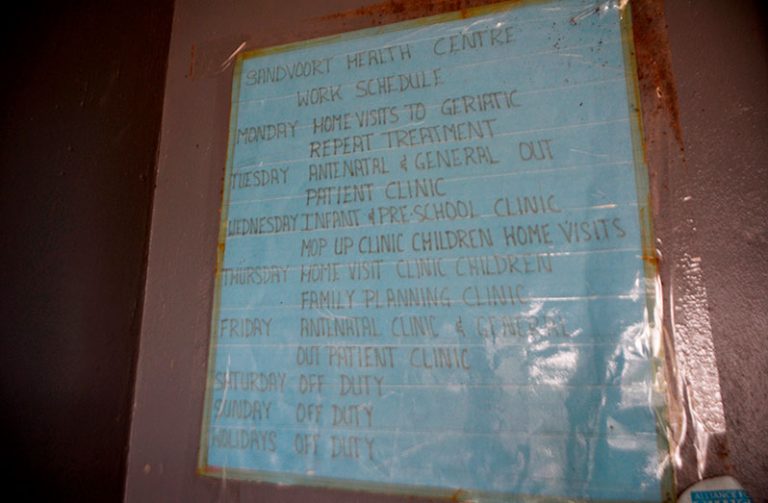 SANDVOORT HEALTH CENTRE
WORK SCHEDULE
MONDAY HOME VISITS TO GERIATIC
REPEAT TREATMENT
TUESDAY ANTENATAL & GENERAL OUT
PATIENT CLINIC
WEDNESDAY INFANT & PRE-SCHOOL CLINIC
MOP UP CLINIC CHILDREN HOME VISITS
THURSDAY HOME VISIT CLINIC CHILDREN
FAMILY PLANNING CLINIC
FRIDAY ANTENATAL CLINIC & GENERAL
OUT PATIENT CLINIC
SATURDAY OFF DUTY
SUNDAY OFF DUTY
HOLIDAYS OFF DUTY